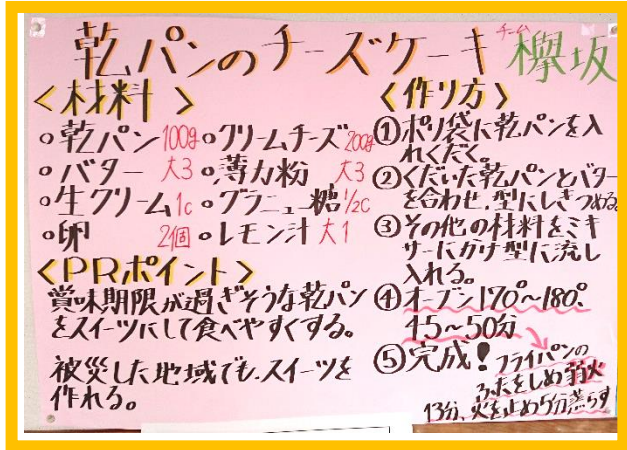 乾パンのチーズケーキ チーム 欅坂
<材料>
・乾パン 100g ・クリームチーズ 200g
・バター 大3 ・薄力粉 大3
・生クリーム 1c ・グラニュー糖 1/2c
・卵 2個 ・レモン汁 大1
<PRポイント>
賞味期限が過ぎそうな乾パン
をスイーツにして食べやすくする。
被災した地域でも、スイーツを
作れる。
<作り方>
①ポリ袋に乾パンを入
れくだく。
②くだいた乾パンとバター
を合わせ、型にしきつめる。
③その他の材料をミキ
サーにかけ型に流し
入れる。
④オーブン170°~180°
45~50分
⑤完成!
フライパンの
ふたをしめ弱火
13分、火を止め5分蒸らす